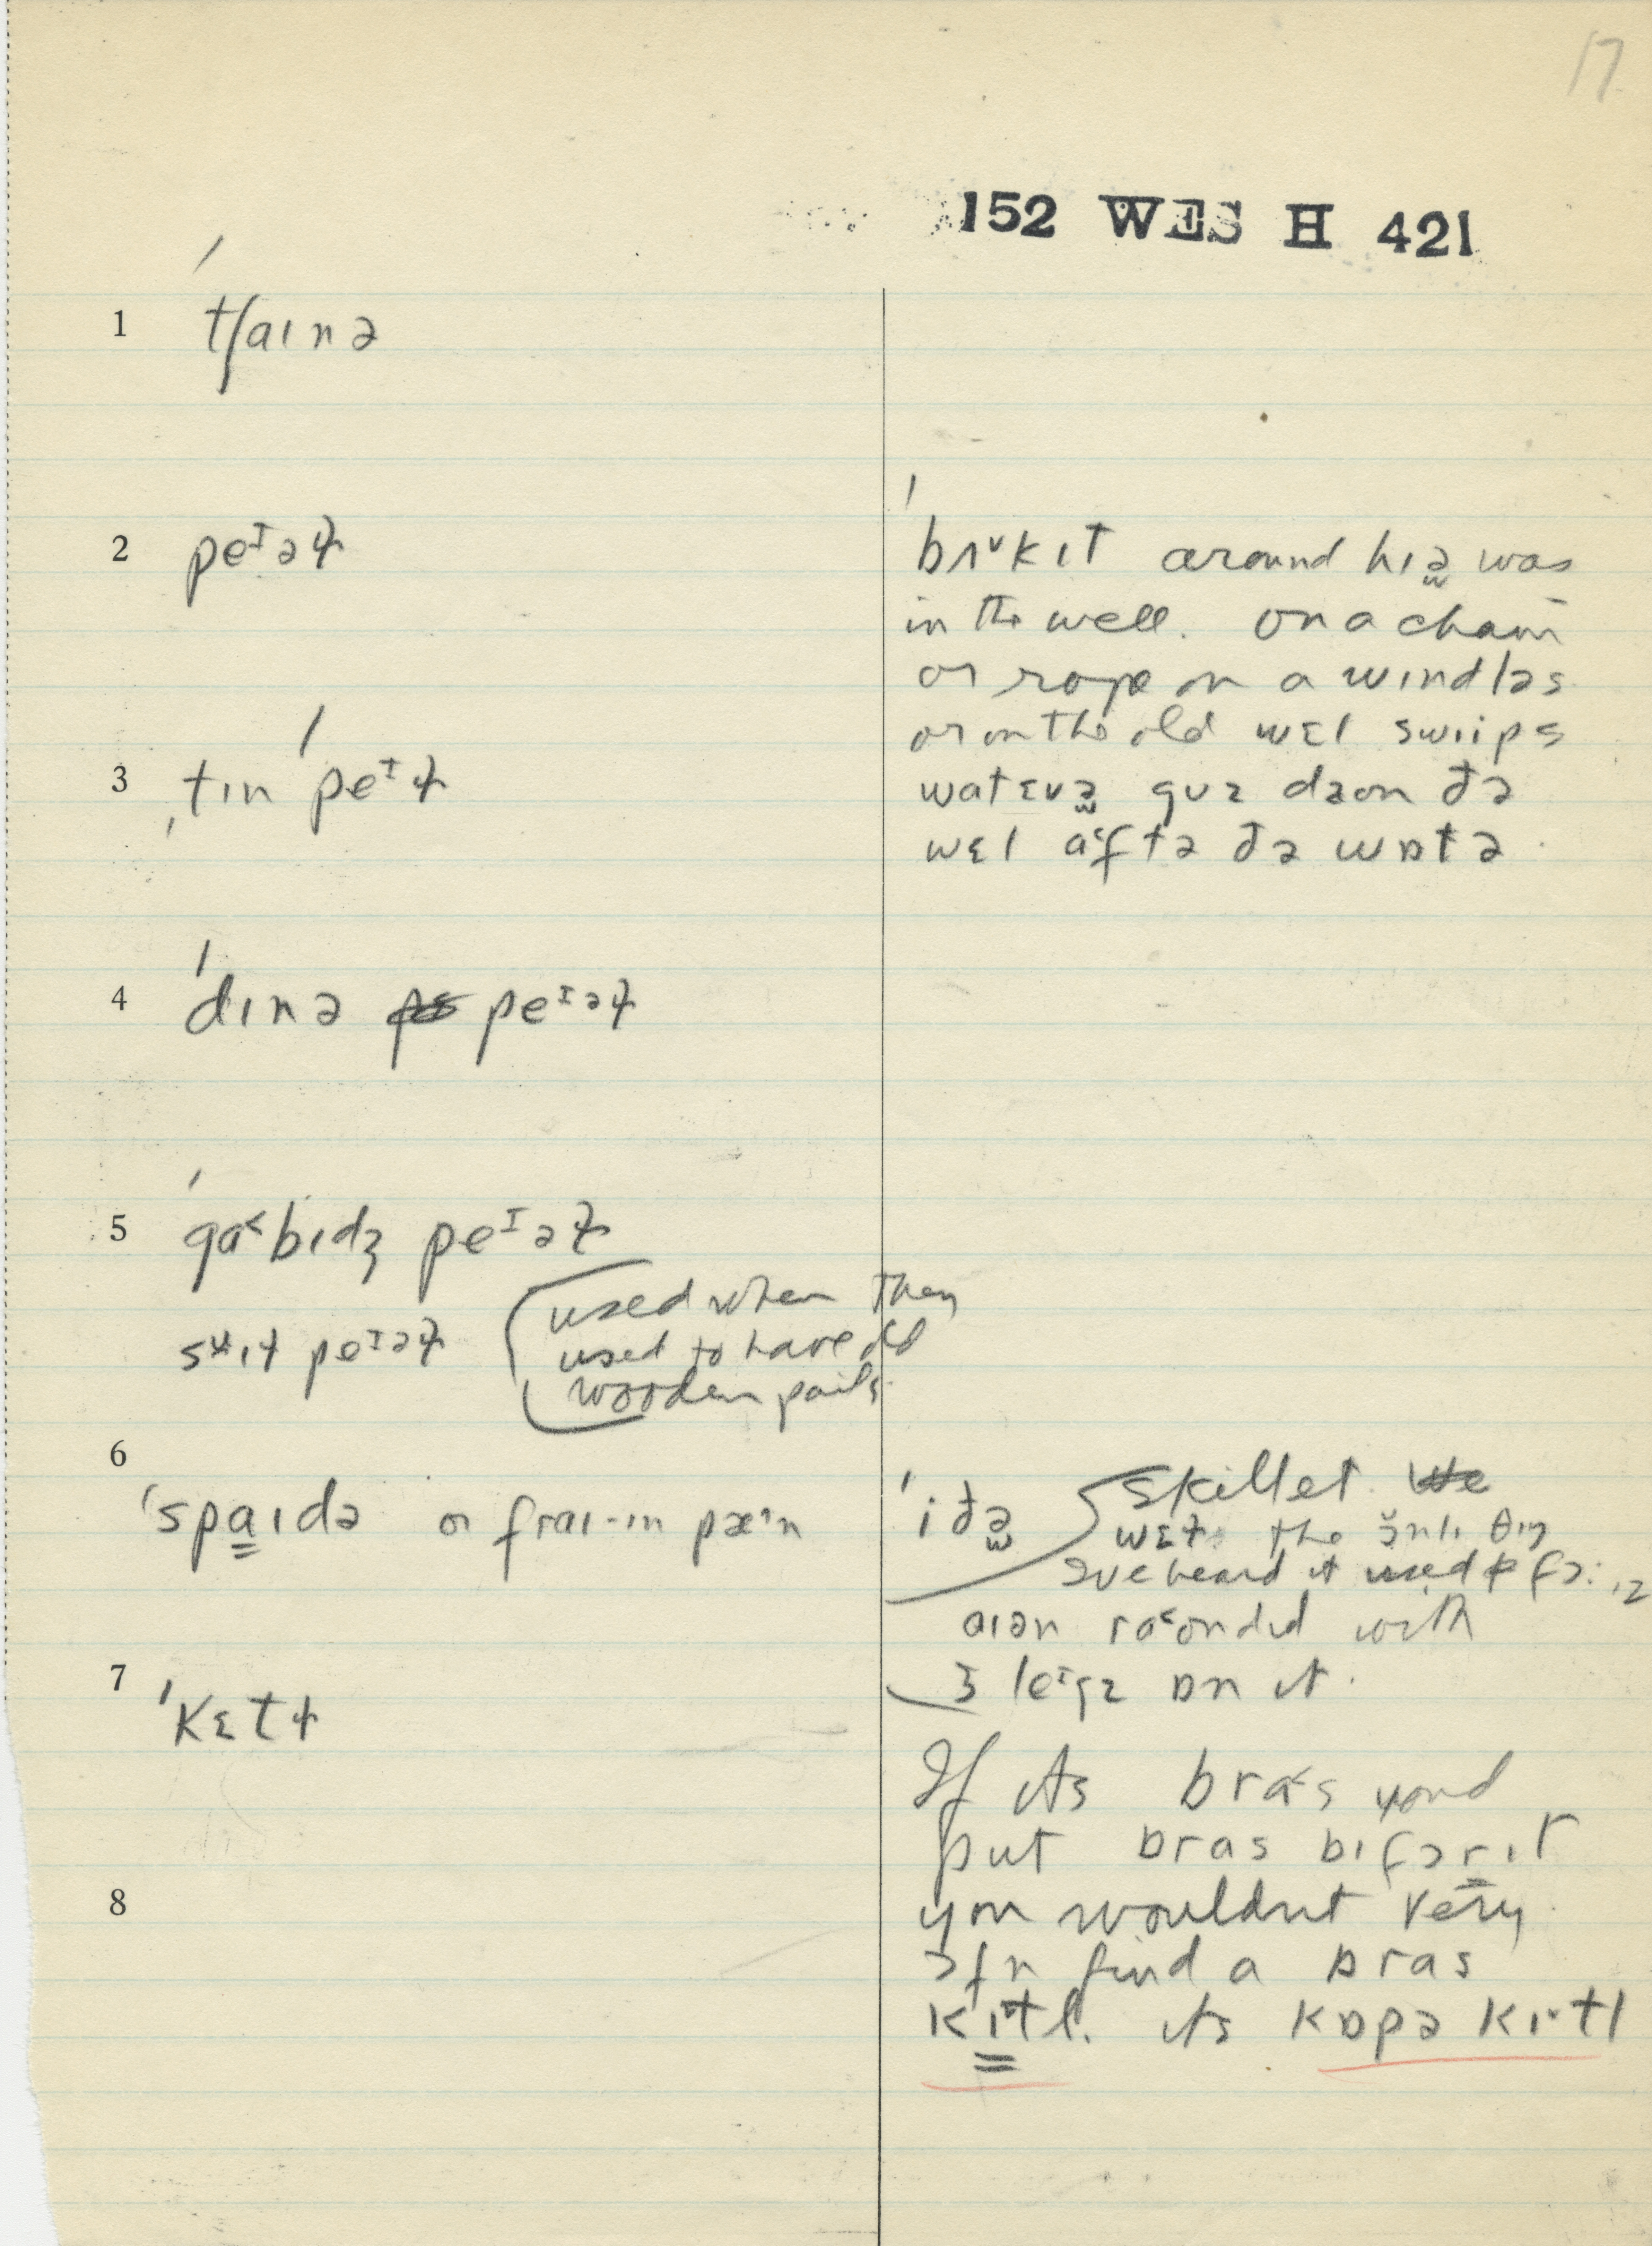 17
152 WES H 421
1 ˈtʃaɪnə
2 peᴵəɫ
3 ˌtɪn ˈpeᴵɫ
4 ˈdɪnə peᴵəɫ
5 ˈgɑ˂bɪdʒ peᴵəɫ
(used when they
swɪɫ peᴵəɫ used to have old
wooden pails
6
ˈspa̳ɪdə or fraɪ-ɪn pæ˄n
7 ˈkɛtɫ
8
ˈbʌ˅kɪt around hɪə̫ was
in the well. on a chain
or rope on a wɪndləs
or on the old wɛl swiips
watɛvə̫ goz daon ðə
wɛl a˂ftə ðə wɒtə.
ˈiðə̫ skillet
wɛɫ the onlɪ θɪŋ
I've heard it used fɔ: ɪz
aɪən ra˂ondɪd with
3 leᴵgz ɒn it.
If its bra˂s youd
put bras bɪfɔr ɪt
you wouldnt very
ɔfn find a bras
kɪ̳tl. its kɒpə kɪ˅tl